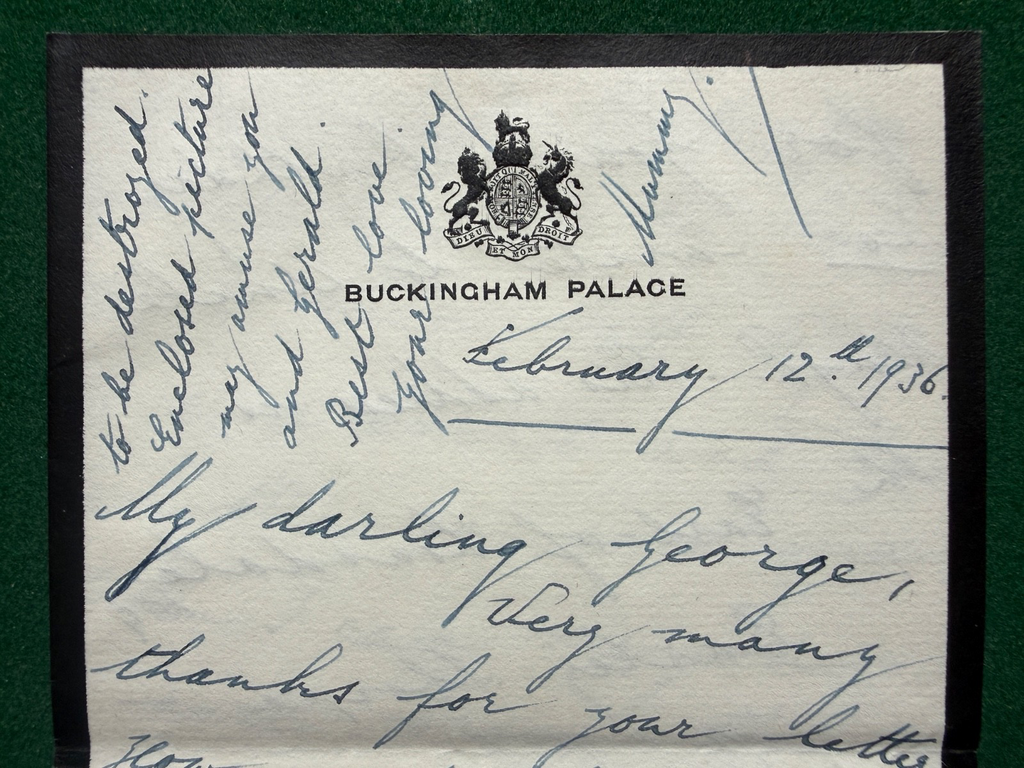 to be destroyed.
Enclosed picture
may amuse you
and Gerald.
Best love.
your loving
Mummy.
DIEU ET MON DROIT
BUCKINGHAM PALACE
February 12th 1936.
My darling George,
Very many
thanks for your letter
How